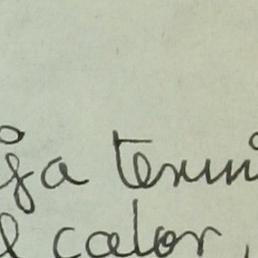 ja termi
l calor,